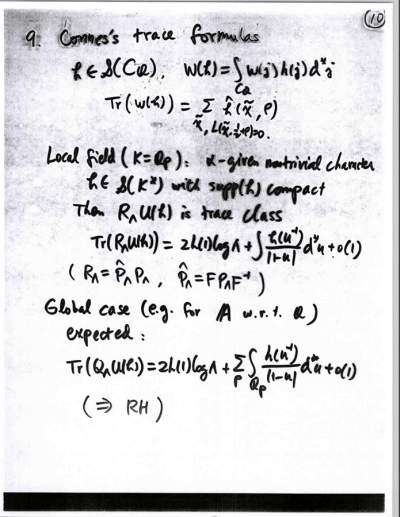 10
9. Connes's trace formulas
h ∈ S(C_Q), W(h) = ∫_{C_Q} W(j) h(j) d*j
Tr(W(h)) = Σ_{χ̃, L(χ̃, ½+ρ)=0} ĥ(χ̃, ρ)
Local field (K = Q_p): α-given nontrivial character
h ∈ S(K*) with supp(h) compact
Then R_Λ U(h) is trace class
Tr(R_Λ U(h)) = 2h(1) log Λ + ∫ h(u⁻¹)/|1-u| d*u + o(1)
(R_Λ = P̂_Λ P_Λ, P̂_Λ = F P_Λ F⁻¹)
Global case (e.g. for A w.r.t. Q)
expected:
Tr(Q_Λ U(h)) = 2h(1) log Λ + Σ_p ∫_{Q_p} h(u⁻¹)/|1-u| d*u + o(1)
(⇒ RH)